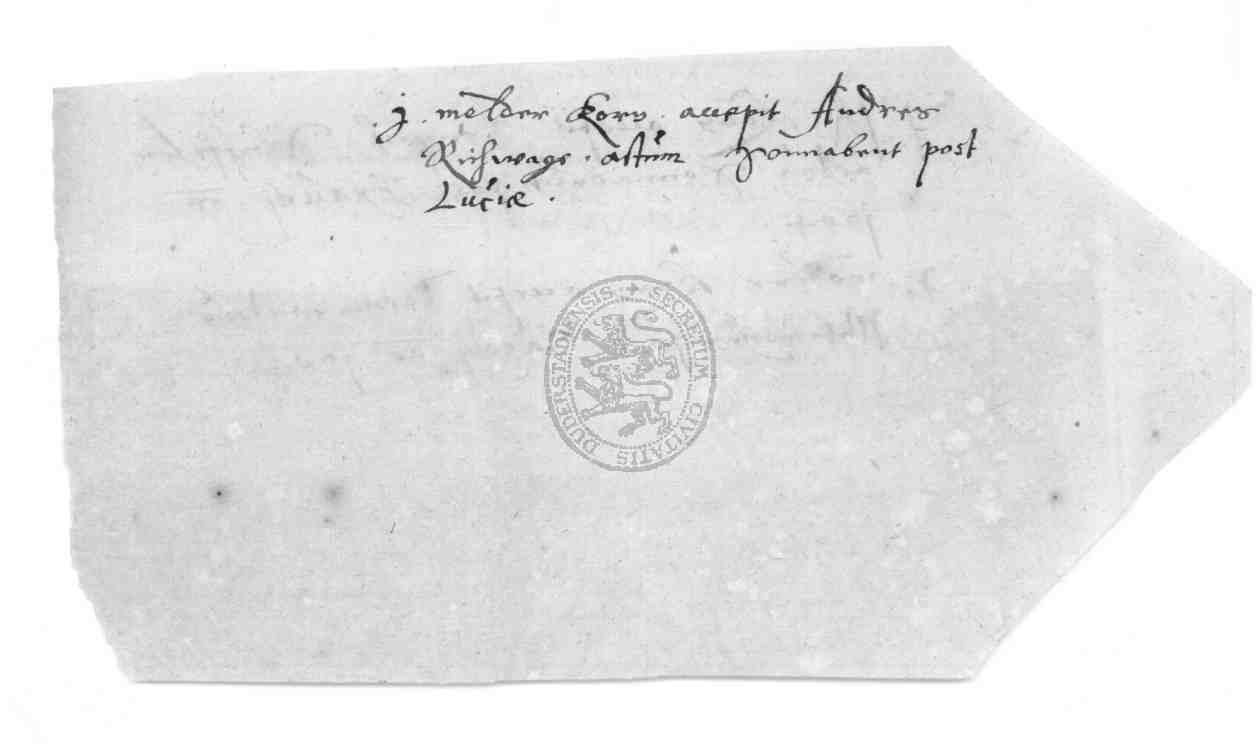 .j. molder korn . accepit Andres
Richwage . actum Sonnabent post
Lucie .
SECRETUM CIVITATIS DUDERSTADIENSIS +